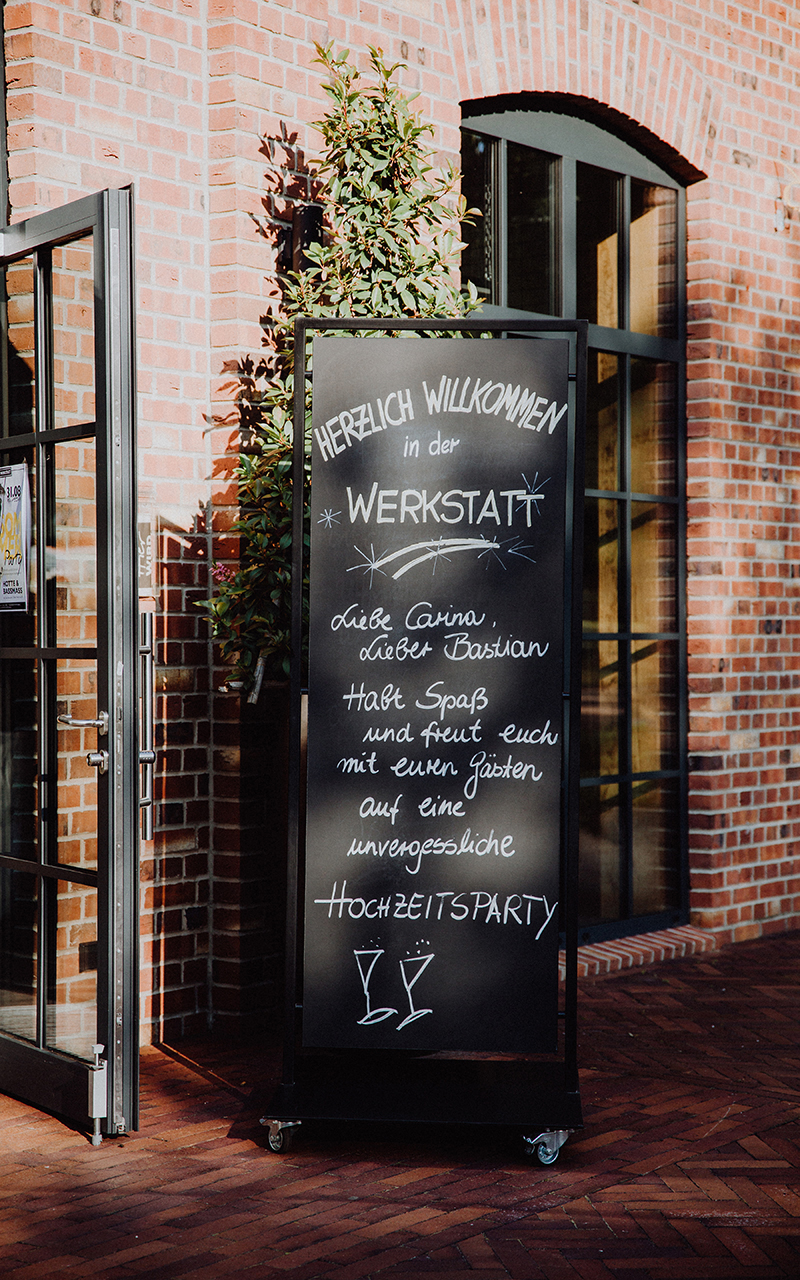 HERZLICH WILLKOMMEN
in der
WERKSTATT
Liebe Carina,
Lieber Bastian
Habt Spaß
und freut euch
mit euren Gästen
auf eine
unvergessliche
HOCHZEITSPARTY
31.08
Party
HOTTE &
BASSMASS